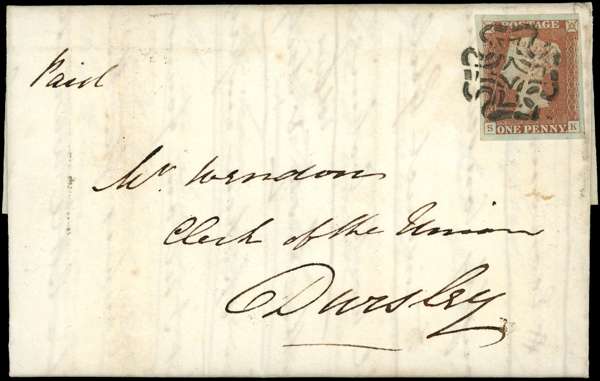 POSTAGE
S ONE PENNY K
Paid
Mr. Wendon
Clerk of the Union
Dursley